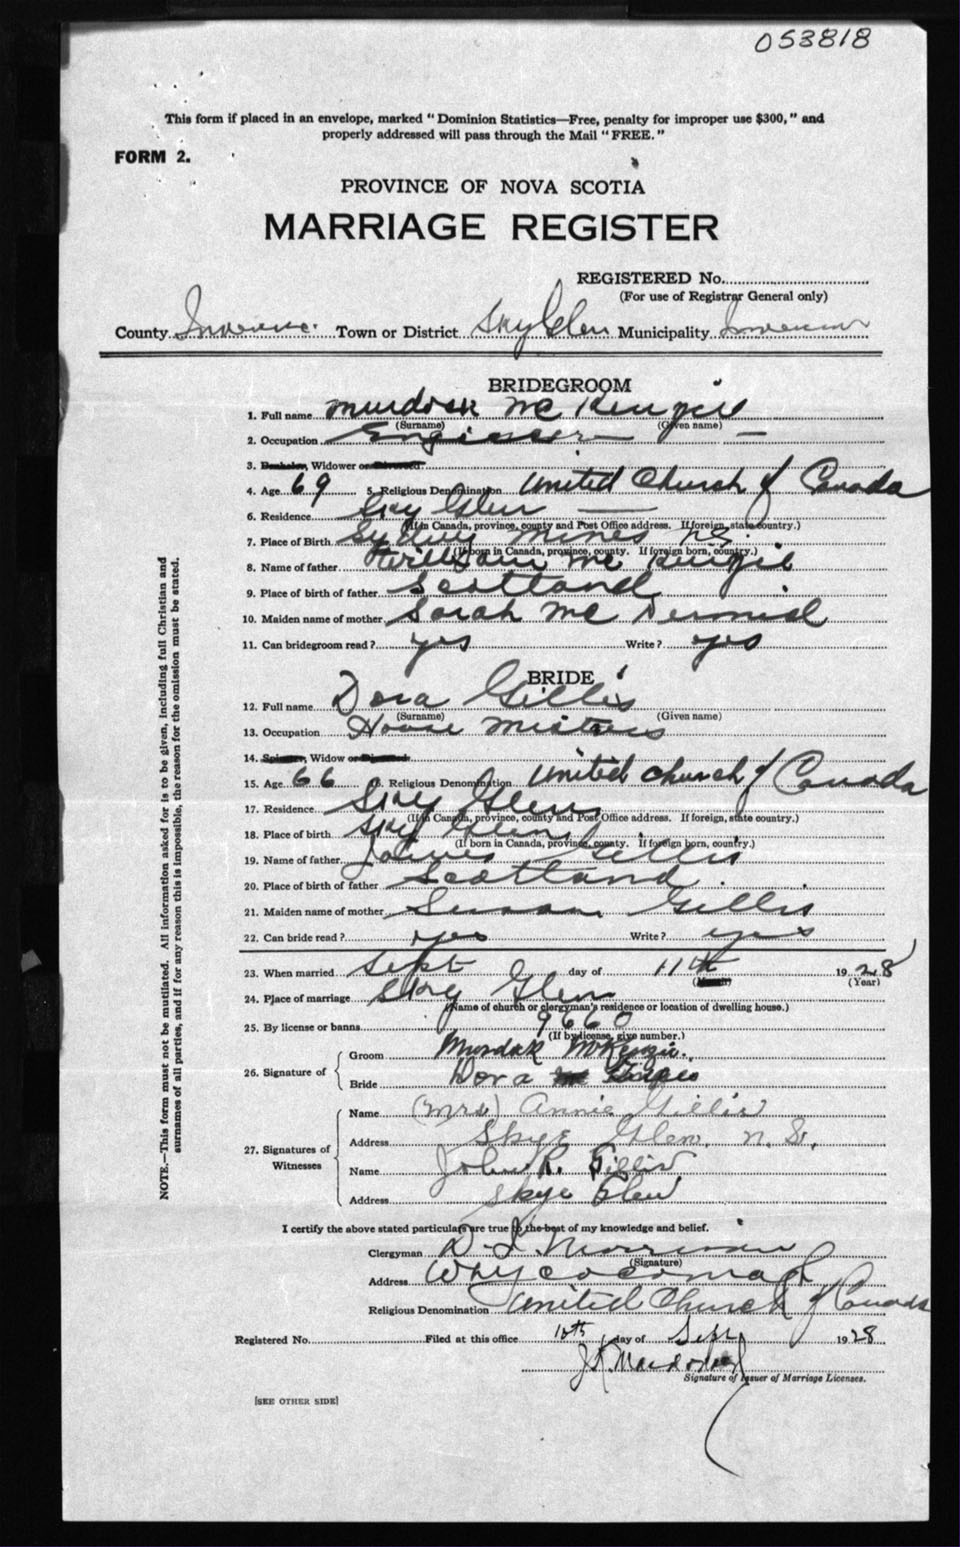 053818
This form if placed in an envelope, marked "Dominion Statistics—Free, penalty for improper use $300," and
properly addressed will pass through the Mail "FREE."
FORM 2.
PROVINCE OF NOVA SCOTIA
MARRIAGE REGISTER
REGISTERED No.
(For use of Registrar General only)
County Inverness Town or District Sky Glen Municipality Inverness
BRIDEGROOM
1. Full name Murdock McKenzie
(Surname) (Given name)
2. Occupation Engineer —
3. Bachelor, Widower or Divorced
4. Age 69 5. Religious Denomination United Church of Canada
6. Residence Sky Glen —
(If in Canada, province, county and Post Office address. If foreign, state country.)
7. Place of Birth Sydney Mines N.S.
(If born in Canada, province, county. If foreign born, country.)
8. Name of father William McKenzie
9. Place of birth of father Scotland
10. Maiden name of mother Sarah McDermid
11. Can bridegroom read? yes Write? yes
BRIDE
12. Full name Dora Gillis
(Surname) (Given name)
13. Occupation House Mistress
14. Spinster, Widow or Divorced
15. Age 66 6. Religious Denomination United Church of Canada
17. Residence Sky Glen
(If in Canada, province, county and Post Office address. If foreign, state country.)
18. Place of birth Sky Glen
(If born in Canada, province, county. If foreign born, country.)
19. Name of father James Gillis
20. Place of birth of father Scotland
21. Maiden name of mother Susan Gillis
22. Can bride read? yes Write? yes
23. When married Sept day of 11th 1928
(Month) (Year)
24. Place of marriage Sky Glen
(Name of church or clergyman's residence or location of dwelling house.)
25. By license or banns 9660
(If by license, give number.)
26. Signature of
Groom Murdock McKenzie.
Bride Dora Gillis
27. Signatures of Witnesses
Name (Mrs) Annie Gillis
Address Skye Glen, N.S.
Name John R. Gillis
Address Skye Glen
I certify the above stated particulars are true to the best of my knowledge and belief.
Clergyman D. I. Morrison
(Signature)
Address Whycocomagh
Religious Denomination United Church of Canada
Registered No. Filed at this office 12th day of Sept 1928
Signature of Issuer of Marriage Licenses.
[SEE OTHER SIDE]
NOTE.—This form must not be mutilated. All information asked for is to be given, including full Christian and
surnames of all parties, and if for any reason this is impossible, the reason for the omission must be stated.